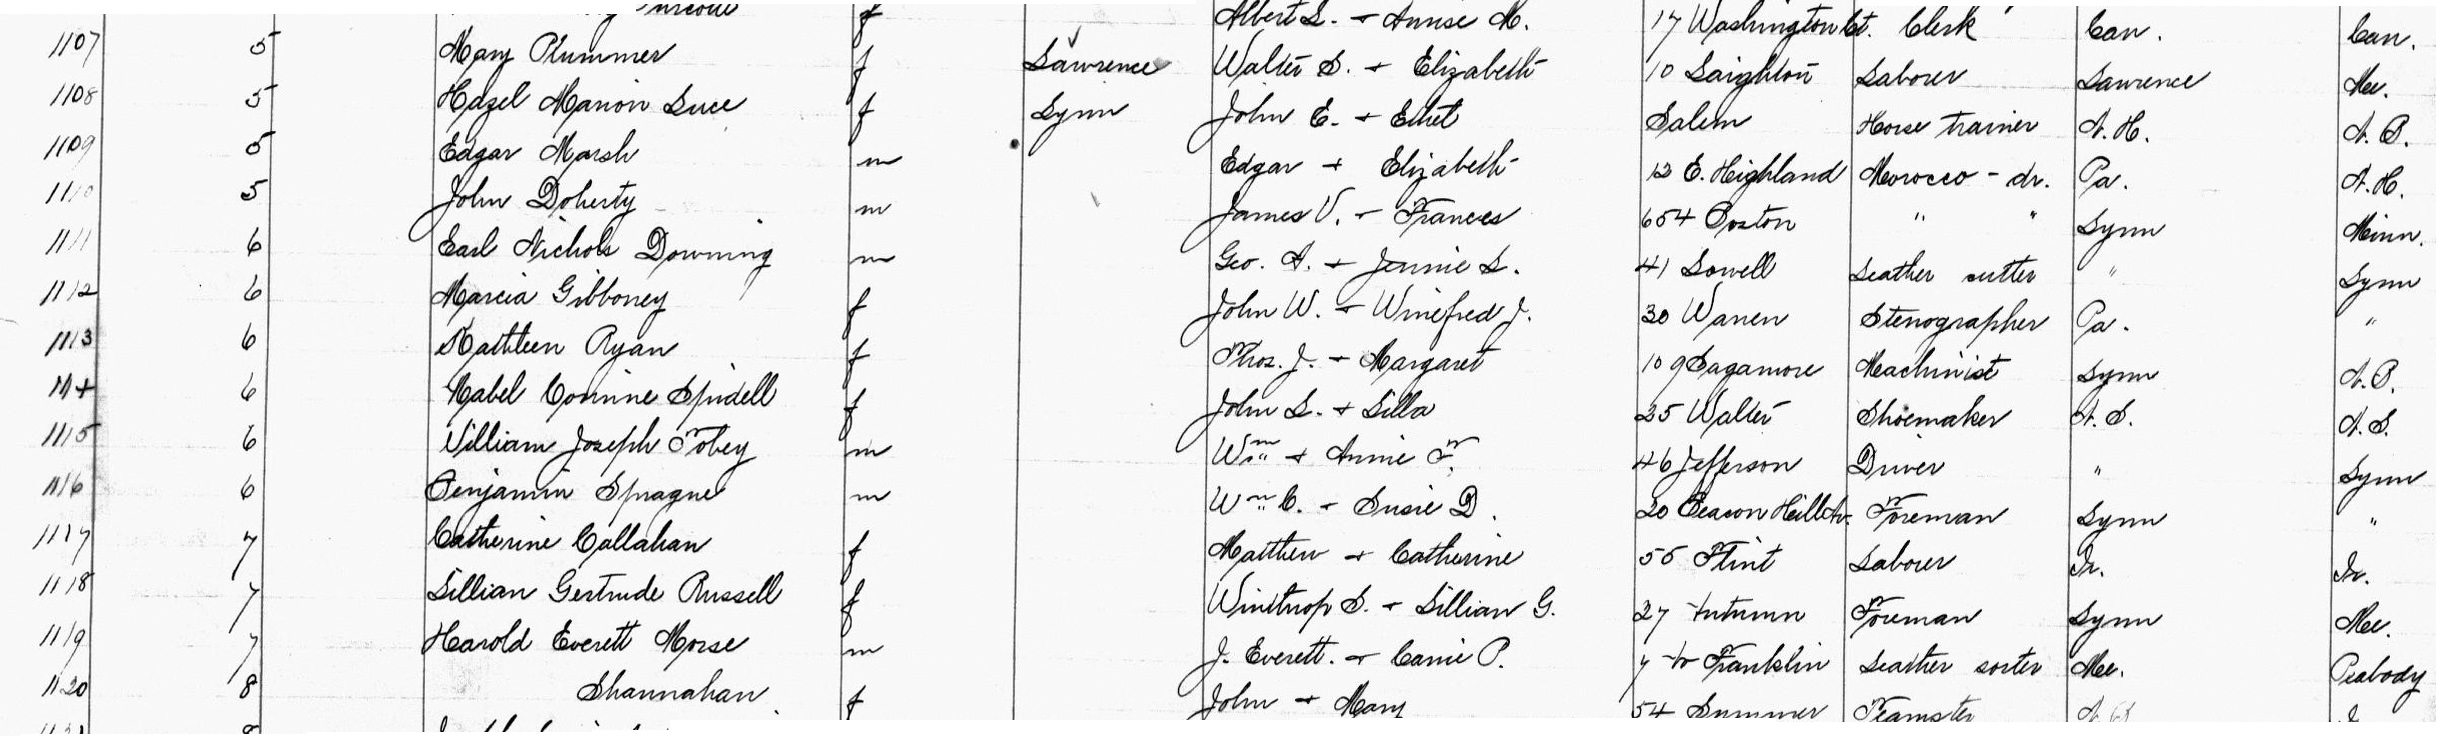 Albert L. + Annie M. 17 Washington Ct. Clerk Can. Can.
1107 5 Mary Plummer f Lawrence Walter S. + Elizabeth 10 Laighton Laborer Lawrence Me.
1108 5 Hazel Marion Luce f Lynn John E. + Ethel Salem Horse trainer N. H. N. B.
1109 5 Edgar Marsh m Edgar + Elizabeth 12 E. Highland Morocco - dr. Pa. N. H.
1110 5 John Doherty m James V. + Frances 654 Boston " " Lynn Minn.
1111 6 Earl Nichols Downing m Geo. A. + Jennie L. 41 Lowell Leather cutter " Lynn
1112 6 Marcia Gibboney f John W. + Winefred J. 30 Warren Stenographer Pa. "
1113 6 Kathleen Ryan f Thos. J. + Margaret 109 Sagamore Machinist Lynn N. B.
1114 6 Mabel Corinne Spidell f John L. + Lilla 25 Walter Shoemaker N. S. N. S.
1115 6 William Joseph Tobey m Wm + Annie F. 46 Jefferson Driver " Lynn
1116 6 Benjamin Sprague m Wm C. + Susie D. 20 Beacon Hill Av. Foreman Lynn "
1117 7 Catherine Callahan f Matthew + Catherine 55 Flint Laborer Ir. Ir.
1118 7 Lillian Gertrude Russell f Winthrop S. + Lillian G. 27 Autumn Foreman Lynn Me.
1119 7 Harold Everett Morse m J. Everett. + Carrie P. 7 Franklin Leather sorter Me. Peabody
1120 8 Shannahan f John + Mary 54 Summer Teamster